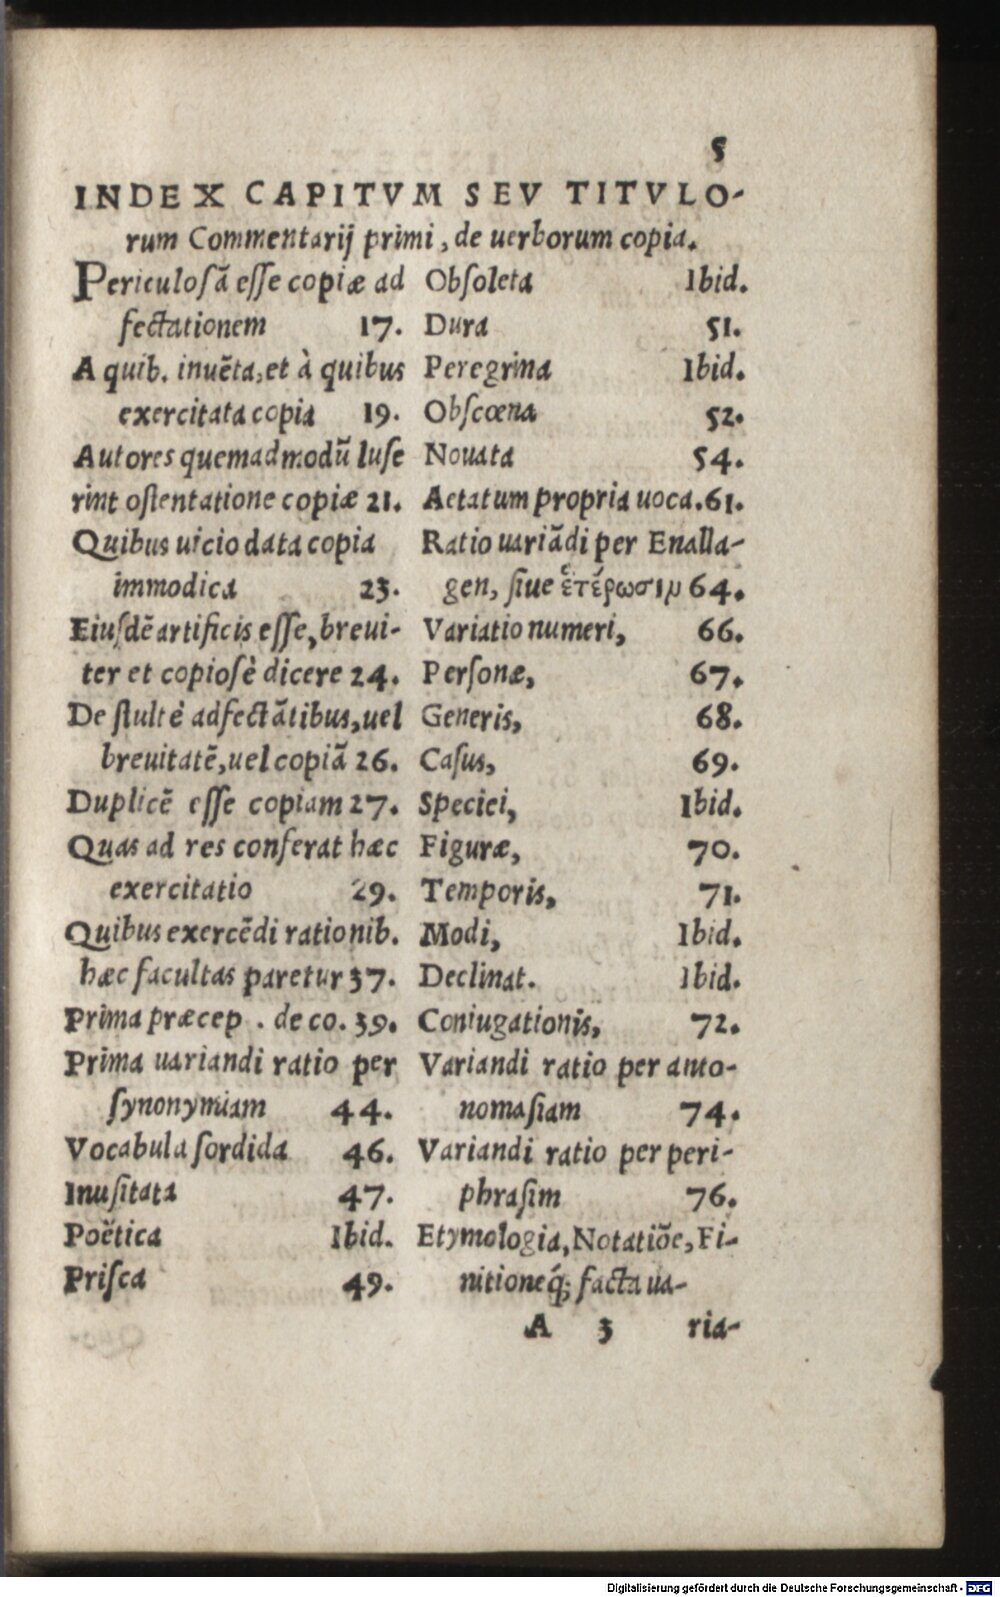 5
INDEX CAPITVM SEV TITVLO-
rum Commentarij primi, de uerborum copia.
Periculosã esse copiæ ad
fectationem 17.
A quib. inuẽta, et à quibus
exercitata copia 19.
Autores quemadmodũ luse
rint ostentatione copiæ 21.
Quibus uicio data copia
immodica 23.
Eiusdẽ artificis esse, breui-
ter et copiosè dicere 24.
De stultè adfectãtibus, uel
breuitatẽ, uel copiã 26.
Duplicẽ esse copiam 27.
Quas ad res conferat hæc
exercitatio 29.
Quibus exercẽdi rationib.
hæc facultas paretur 37.
Prima præcep. de co. 39.
Prima uariandi ratio per
synonymiam 44.
Vocabula sordida 46.
Inusitata 47.
Poëtica Ibid.
Prisca 49.
Obsoleta Ibid.
Dura 51.
Peregrina Ibid.
Obscœna 52.
Nouata 54.
Aetatum propria uoca. 61.
Ratio uariãdi per Enalla-
gen, siue ἑτέρωσιν 64.
Variatio numeri, 66.
Personæ, 67.
Generis, 68.
Casus, 69.
Speciei, Ibid.
Figuræ, 70.
Temporis, 71.
Modi, Ibid.
Declinat. Ibid.
Coniugationis, 72.
Variandi ratio per anto-
nomasiam 74.
Variandi ratio per peri-
phrasim 76.
Etymologia, Notatiõe, Fi-
nitioneq́; facta ua-
A 3 ria-
Digitalisierung gefördert durch die Deutsche Forschungsgemeinschaft - DFG